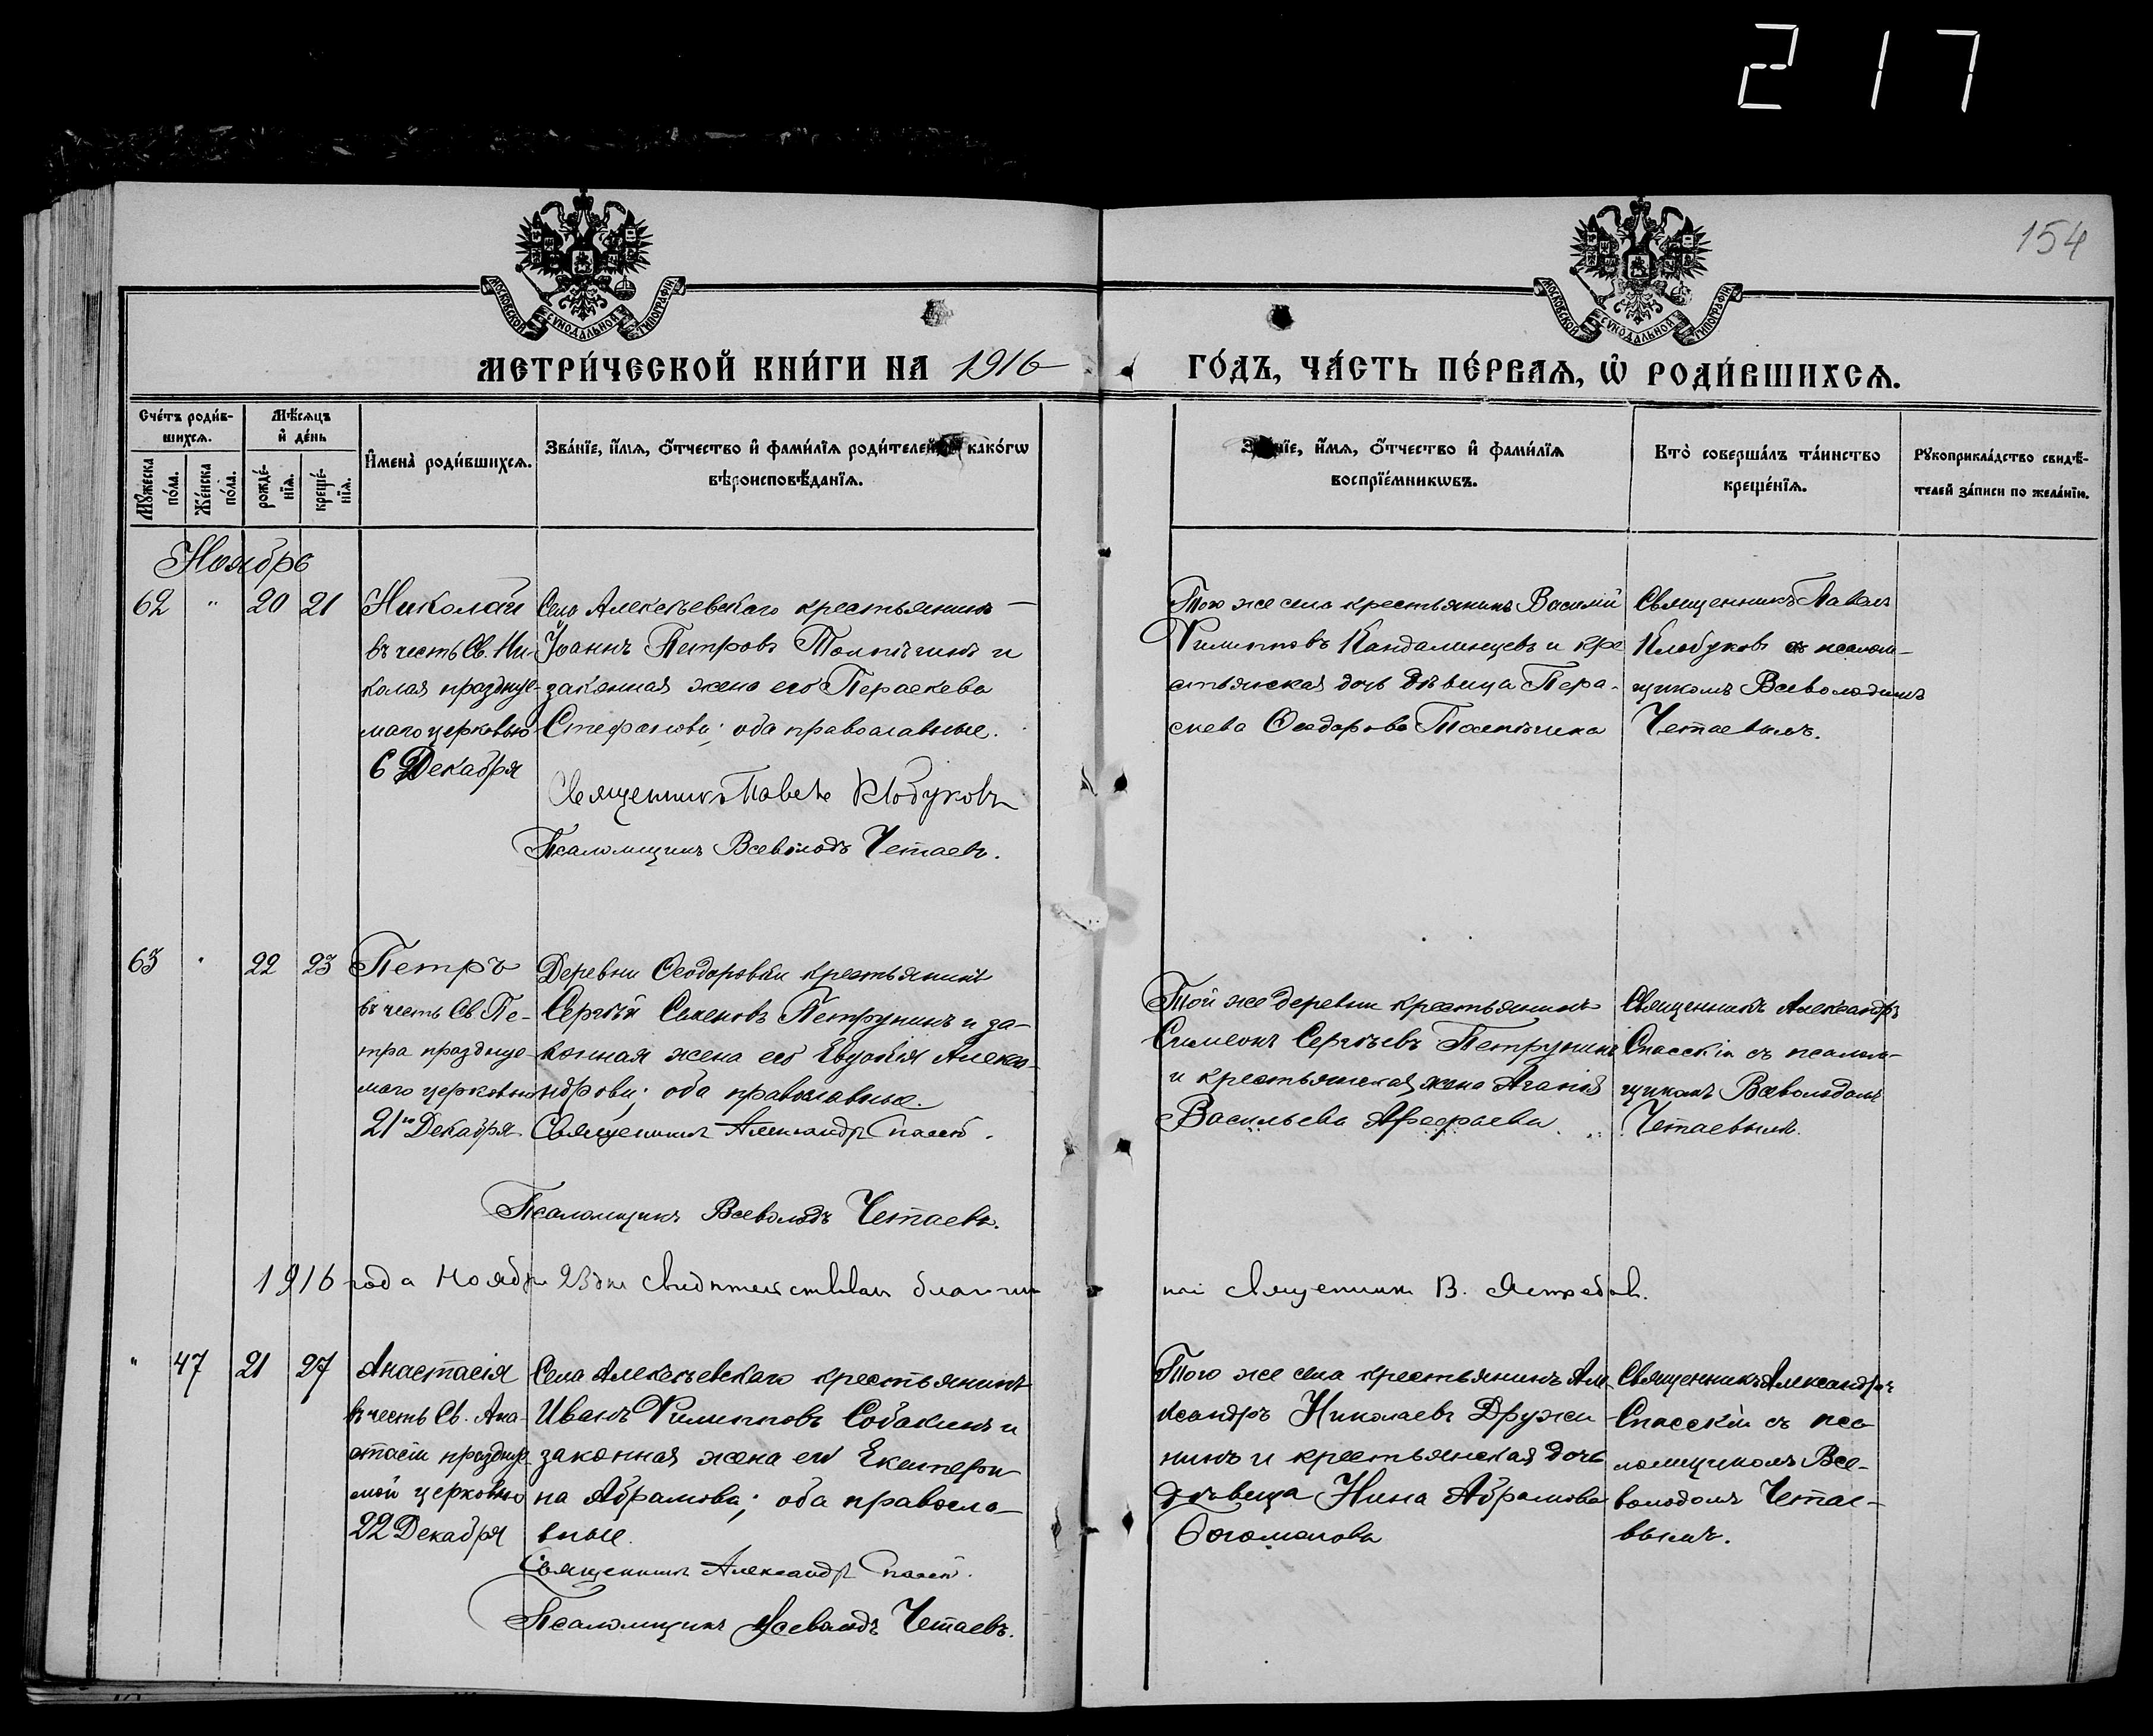 217
154
МОСКОВСКОЙ СѴНОДАЛЬНОЙ ТИПОГРАФІИ
МОСКОВСКОЙ СѴНОДАЛЬНОЙ ТИПОГРАФІИ
МЕТРИ́ЧЕСКОЙ КНИ́ГИ НА 1916 ГО́ДЪ, ЧА́СТЬ ПЕ́РВАѦ, Ѡ҆ РОДИ́ВШИХСѦ.
Сче́тъ роди́в-
шихсѧ.
Мѣ́сѧцъ
и҆ де́нь
Мꙋ́жеска по́ла.
Же́нска по́ла.
рожде́-нїѧ.
креще́-нїѧ.
И҆мена̀ роди́вшихсѧ.
Зва́нїе, и҆́мѧ, ѻ҆́тчество и҆ фами́лїѧ роди́телей, како́гѡ
вѣроисповѣ́данїѧ.
Зва́нїе, и҆́мѧ, ѻ҆́тчество и҆ фами́лїѧ
воспрїе́мникѡвъ.
Кто̀ соверша́лъ та́инство
креще́нїѧ.
Рꙋкоприкла́дство свидѣ́-
телей за́писи по жела́нїю.
Ноябрь
62 " 20 21
Николай
въ честь Св. Ни-
колая праздnуе-
маго церковью
6 Декабря
Села Алексѣевскаго крестьянинъ
Іоаннъ Петровъ Толпѣгинъ и
законная жена его Параскева
Стефанова; оба православные.
Священникъ Павелъ Клобуковъ
Псаломщикъ Всеволодъ Четаевъ.
Того же села крестьянинъ Василій
Филипповъ Кандалинцевъ и кре
стьянская дочь дѣвица Пара-
скева Ѳеодорова
Священникъ Павелъ
Клобуковъ съ псалом-
щикомъ Всеволодомъ
Четаевымъ.
63 " 22 23
Петръ
въ честь Св Пе-
тра праздnуе-
маго церковью
21го Декабря
Деревни Ѳеодоровки крестьянинъ
Сергѣй Семеновъ Петрунинъ и за-
конная жена его Евдокія Алекса-
ндрова; оба православные.
Священникъ Александръ Спасскій.
Псаломщикъ Всеволодъ Четаевъ.
Той же деревни крестьянинъ
Симеонъ Сергѣевъ Петрунинъ
и крестьянская жена Агапія
Васильева
Священникъ Александръ
Спасскій съ псалом-
щикомъ Всеволодомъ
Четаевымъ.
1916 года Ноября 23 дня свидѣтельствовалъ благочин
ный Священникъ В. Ястребовъ.
" 47 21 27
Анастасія
въ честь Св. Ана-
стасіи праздnуе-
мой церковью
22 Декабря
Села Алексѣевскаго крестьянинъ
Иванъ Филипповъ Собакинъ и
законная жена его Екатери
на Абрамова; оба правосла-
вные.
Священникъ Александръ Спасскій.
Псаломщикъ Всеволодъ Четаевъ.
Того же села крестьянинъ Але
ксандръ Николаевъ Дружи
нинъ и крестьянская дочь
дѣвица Нина Абрамова
Богомолова
Священникъ Александръ
Спасскій съ пса
ломщикомъ Все-
володомъ Четае-
вымъ.